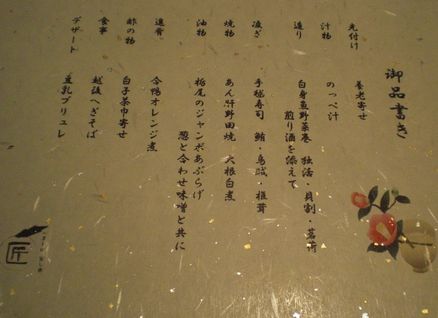 御品書き
先付け 養老寄せ
汁物 のっぺ汁
造り 白身魚野菜巻 独活・貝割・茗荷
煎り酒を添えて
凌ぎ 手毬寿司 鮪・烏賊・椎茸
焼物 あん肝野田焼 大根白煮
油物 栃尾のジャンボあぶらげ
葱と合わせ味噌と共に
進肴 合鴨オレンジ煮
酢の物 白子茶巾寄せ
食事 越後へぎそば
デザート 豆乳ブリュレ
匠